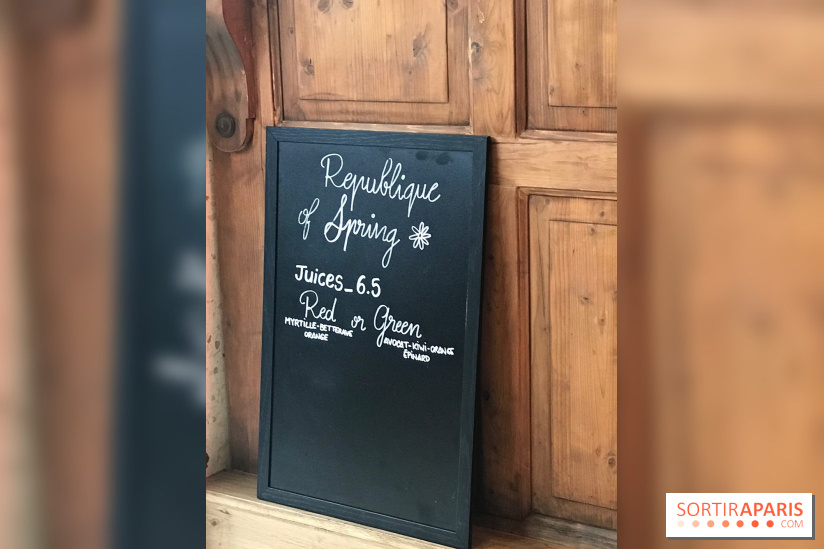 Republique
of Spring
Juices_6.5
Red or Green
MYRTILLE-BETTERAVE
ORANGE
AVOCAT-KIWI-ORANGE
ÉPINARD
SORTIRAPARIS
.COM